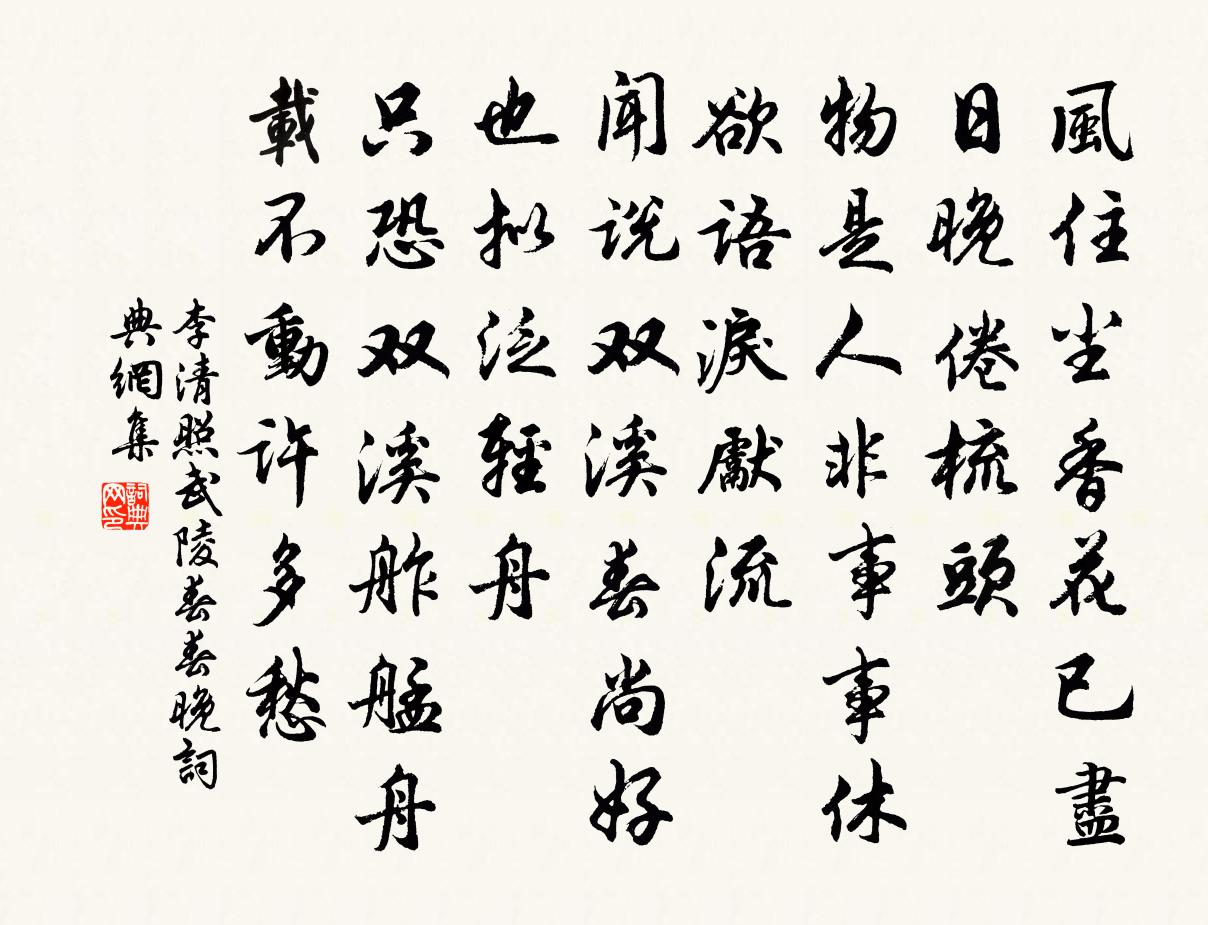 風住尘香花已盡
日晚倦梳頭
物是人非事事休
欲語淚獻流
闻说双溪春尚好
也拟泛輕舟
只恐双溪舴艋舟
載不動许多愁
李清照武陵春春晚詞
典網集
詞典
网印